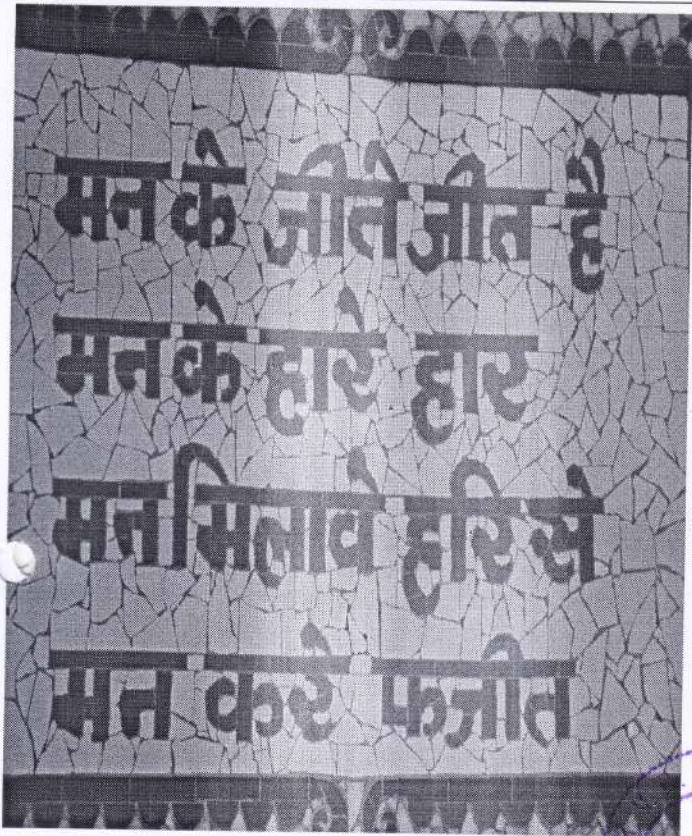 मन के जीते जीत है
मन के हारे हार
मन मिलावे हरि से
मन करे फजीत